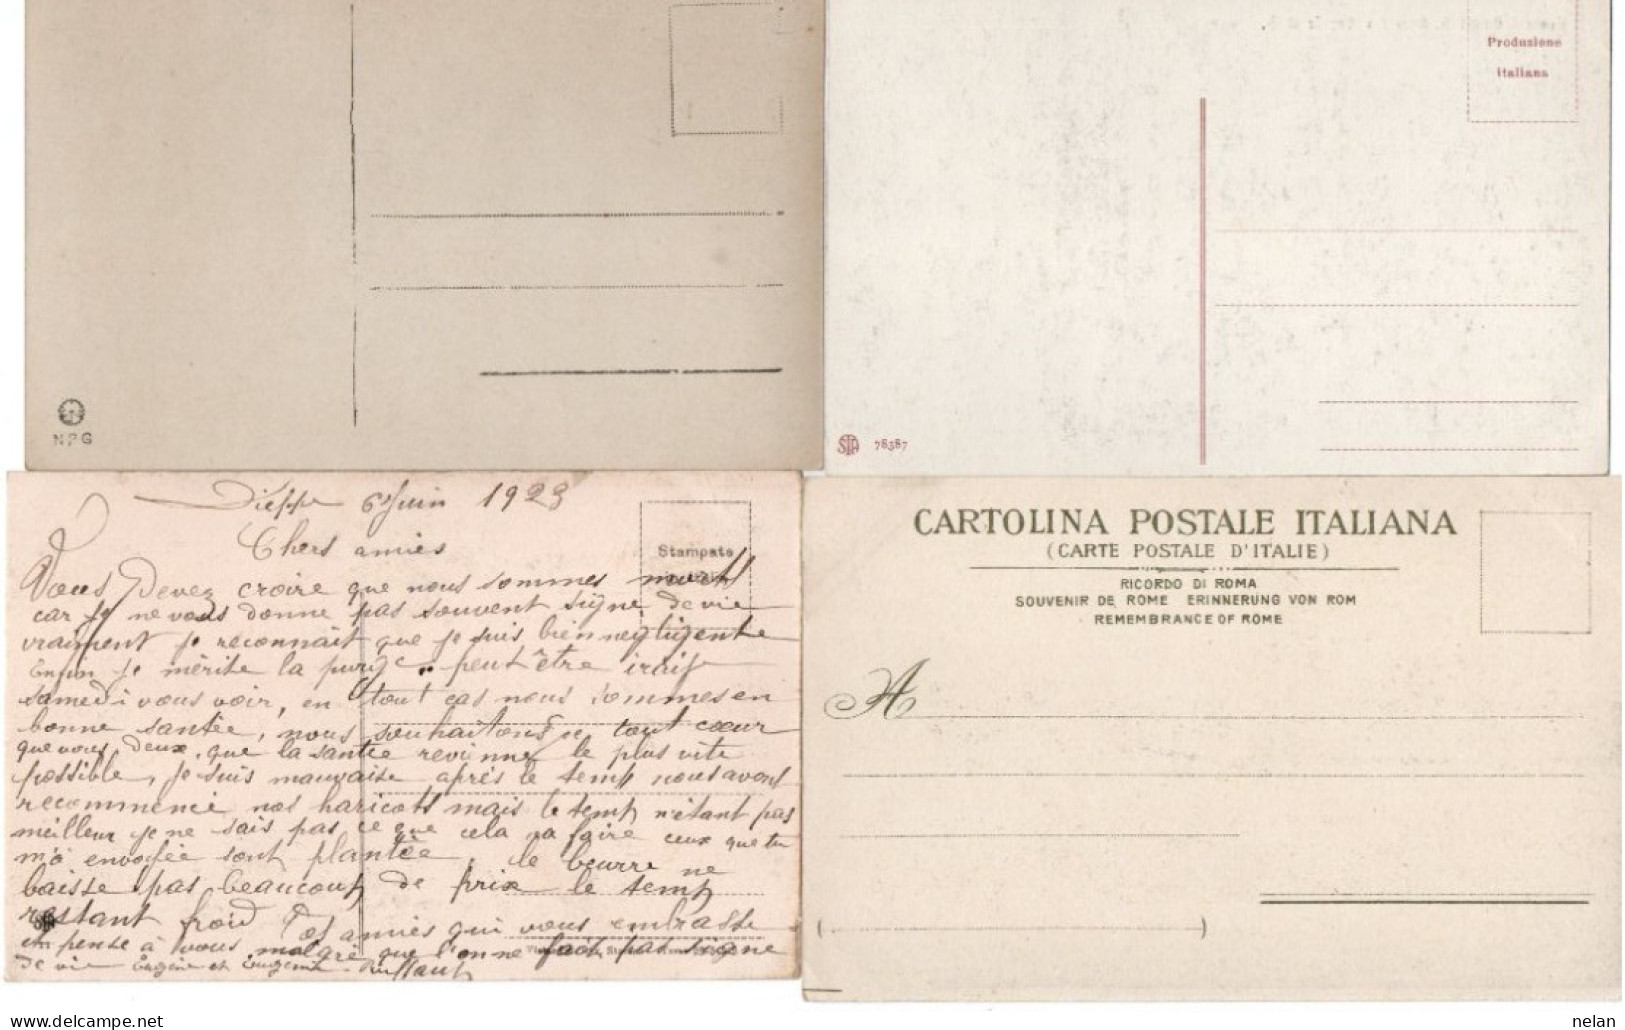 Produzione
italiana
NPG
STA 78387
Dieppe 6 Juin 1923
Chers amies
Stampato
Vous Devez croire que nous sommes morts
car je ne vous donne pas souvent signe de vie
vraiment je reconnait que je suis bien negligente
Enfin je mérite la purge .. peut être iraije
samedi vous voir, en tout cas nous sommes en
bonne santée, nous souhaitons de tout cœur
que vous deux, que la santée revienne le plus vite
possible, je suis mauvaise après le temp nous avons
recommencé nos haricots mais le temp n'étant pas
meilleur je ne sais pas ce que cela va faire ceux que tu
m'a envoyée sont plantée, le beurre ne
baisse pas beaucoup de prix le temp
restant froid Tes amies qui vous embrasse
et pense à vous malgre que l'on ne fait pas signe
de vie Eugène et
CARTOLINA POSTALE ITALIANA
(CARTE POSTALE D'ITALIE)
RICORDO DI ROMA
SOUVENIR DE ROME ERINNERUNG VON ROM
REMEMBRANCE OF ROME
A
(                    )
www.delcampe.net
nelan